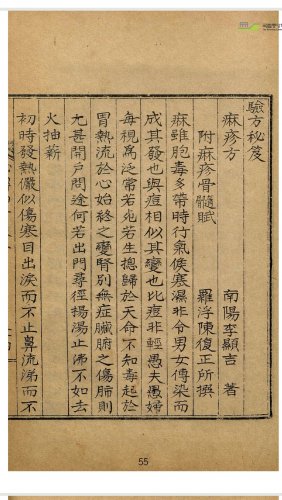 驗方秘笈
南陽李顯吉 著
麻疹方
附麻疹骨髓賦 羅浮陳復正所撰
麻雖胞毒多帶時行氣候寒濕非令男女傳染而
成其發也與痘相似其變也比痘非輕愚夫愚婦
每視為泛常若死若生摠歸於天命不知毒起於
胃熱流於心始終之變腎則無症臟腑之傷肺則
尤甚開戶問途何若出門尋徑揚湯止沸不如去
火抽薪
初時發熱儼似傷寒目出淚而不止鼻流涕而不
55